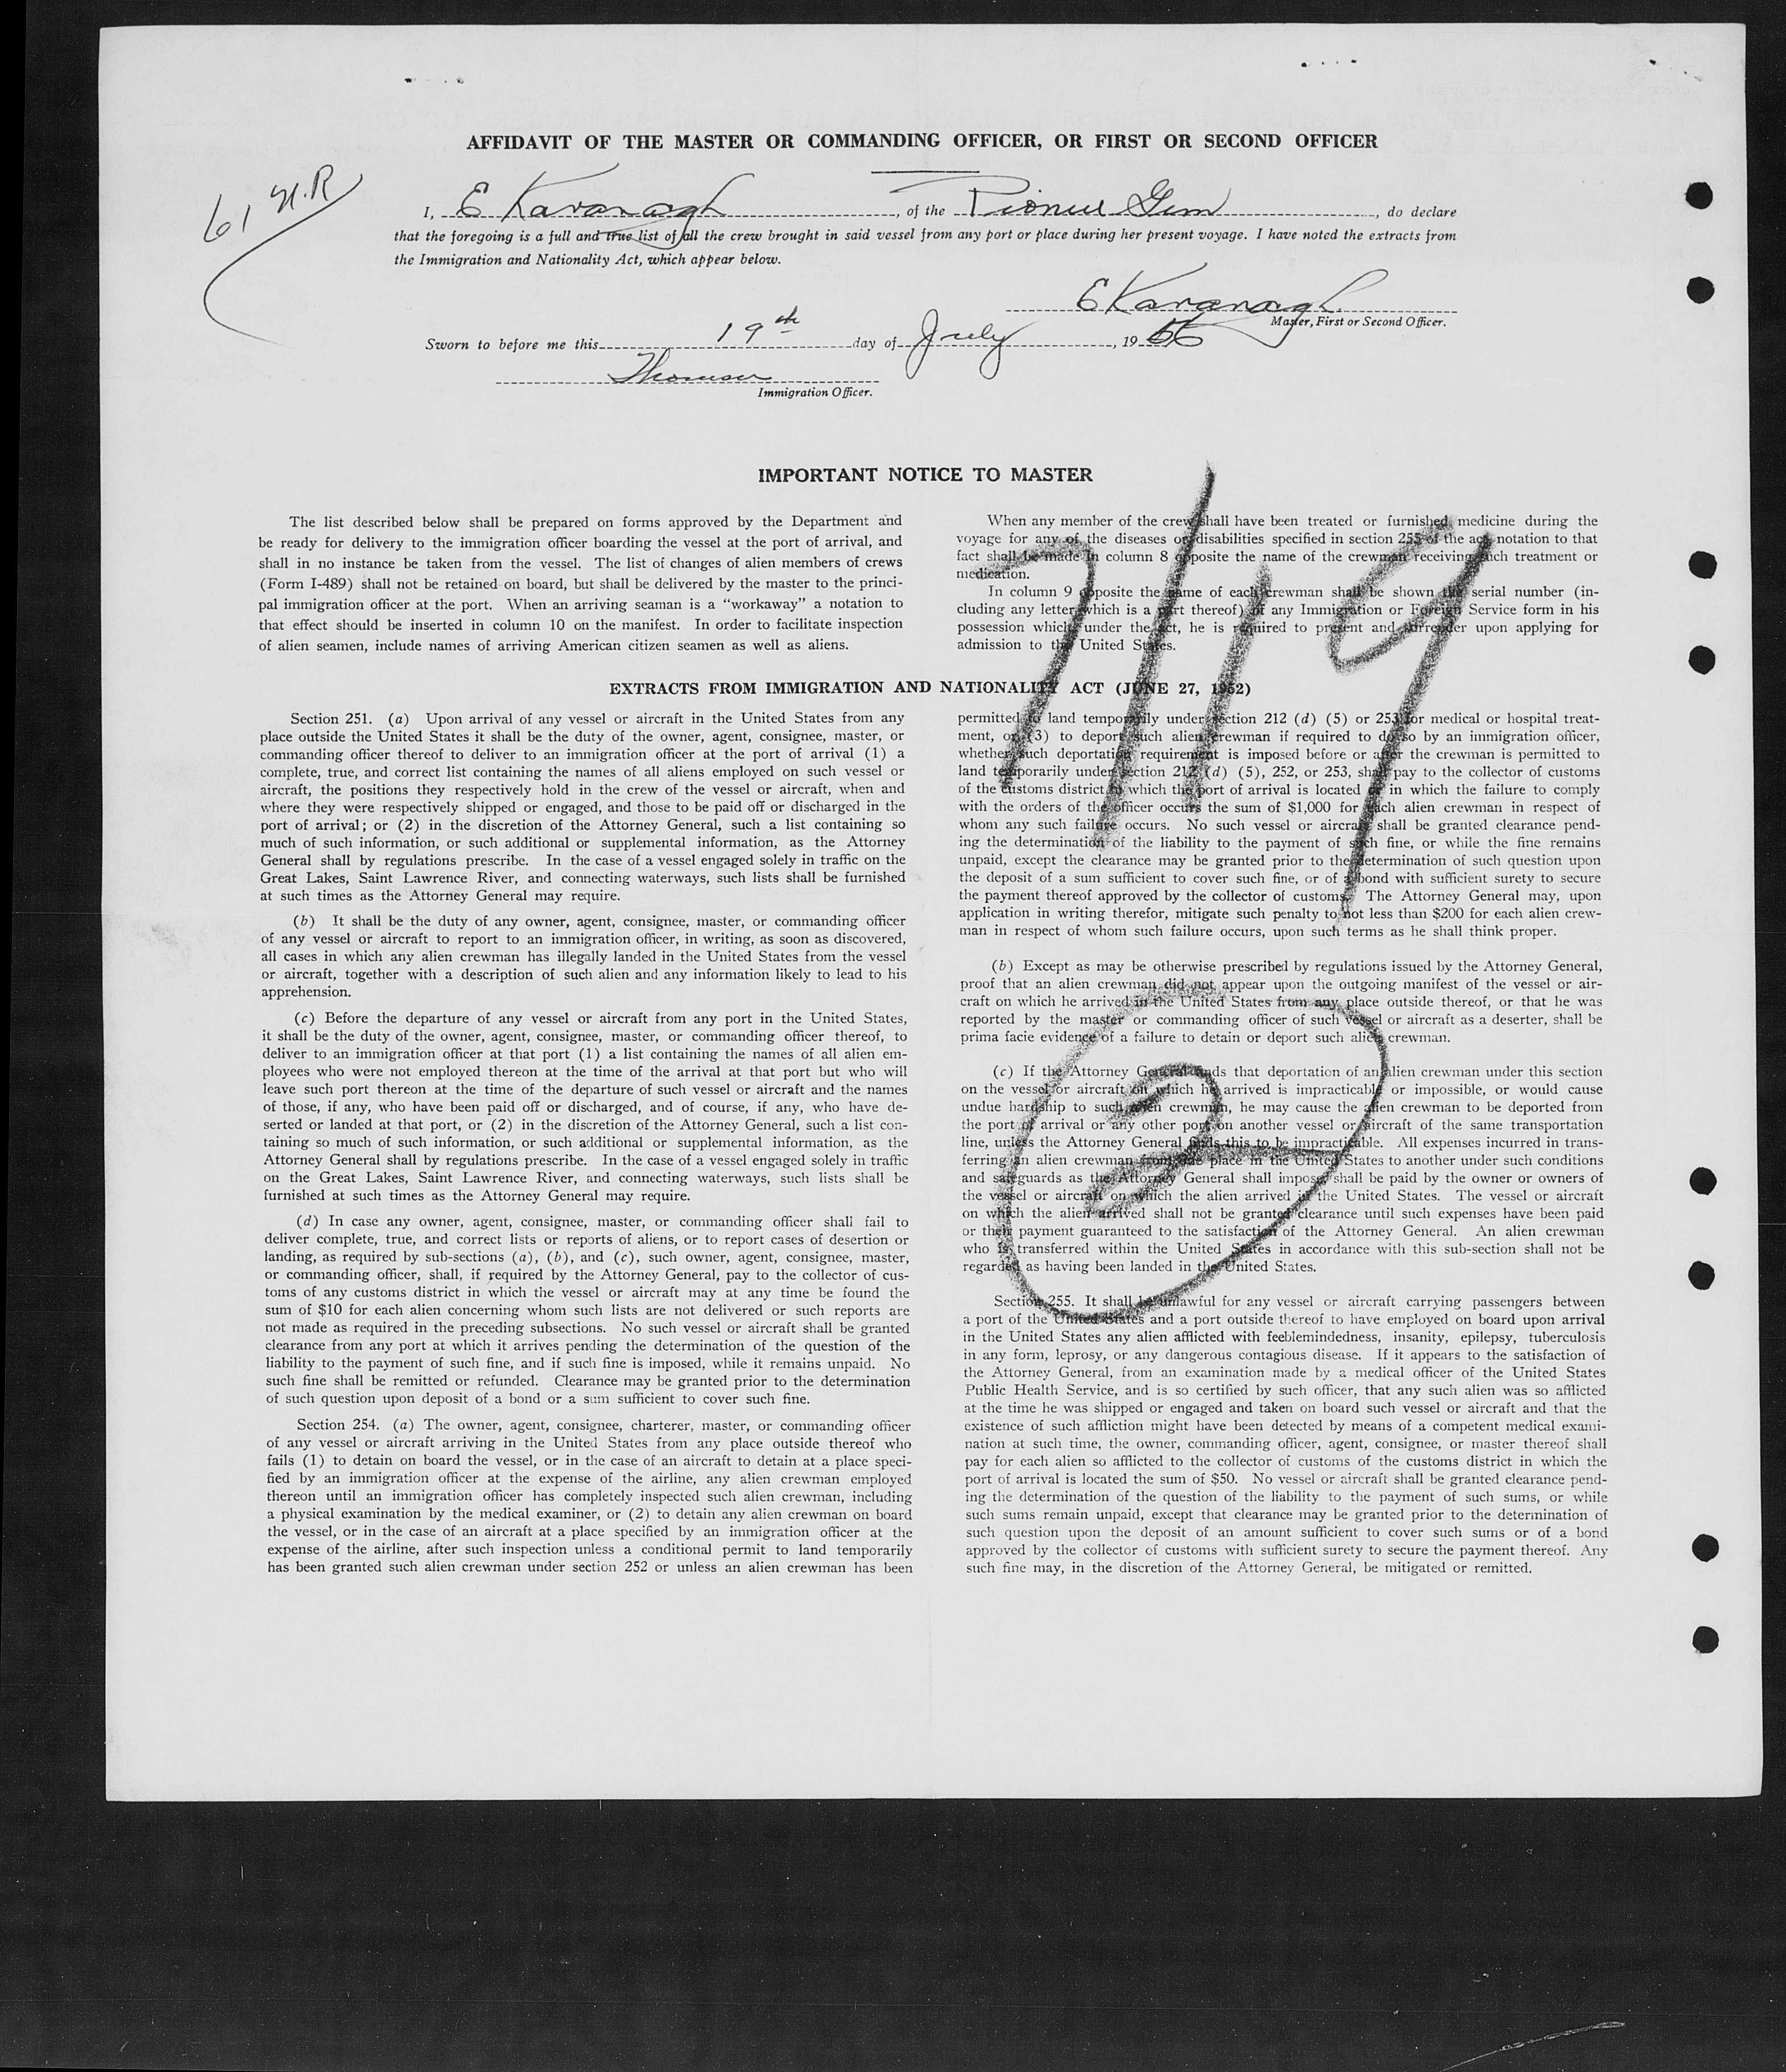 AFFIDAVIT OF THE MASTER OR COMMANDING OFFICER, OR FIRST OR SECOND OFFICER
61 H.R
I, E Kavanagh, of the Pioneer Gem, do declare
that the foregoing is a full and true list of all the crew brought in said vessel from any port or place during her present voyage. I have noted the extracts from
the Immigration and Nationality Act, which appear below.
E Kavanagh
Master, First or Second Officer.
Sworn to before me this 19th day of July, 1956
Thomson
Immigration Officer.
IMPORTANT NOTICE TO MASTER
The list described below shall be prepared on forms approved by the Department and
be ready for delivery to the immigration officer boarding the vessel at the port of arrival, and
shall in no instance be taken from the vessel. The list of changes of alien members of crews
(Form I-489) shall not be retained on board, but shall be delivered by the master to the princi-
pal immigration officer at the port. When an arriving seaman is a “workaway” a notation to
that effect should be inserted in column 10 on the manifest. In order to facilitate inspection
of alien seamen, include names of arriving American citizen seamen as well as aliens.
When any member of the crew shall have been treated or furnished medicine during the
voyage for any of the diseases or disabilities specified in section 255 of the act notation to that
fact shall be made in column 8 opposite the name of the crewman receiving such treatment or
medication.
In column 9 opposite the name of each crewman shall be shown the serial number (in-
cluding any letter which is a part thereof) of any Immigration or Foreign Service form in his
possession which, under the act, he is required to present and surrender upon applying for
admission to the United States.
7/19
EXTRACTS FROM IMMIGRATION AND NATIONALITY ACT (JUNE 27, 1952)
Section 251. (a) Upon arrival of any vessel or aircraft in the United States from any
place outside the United States it shall be the duty of the owner, agent, consignee, master, or
commanding officer thereof to deliver to an immigration officer at the port of arrival (1) a
complete, true, and correct list containing the names of all aliens employed on such vessel or
aircraft, the positions they respectively hold in the crew of the vessel or aircraft, when and
where they were respectively shipped or engaged, and those to be paid off or discharged in the
port of arrival; or (2) in the discretion of the Attorney General, such a list containing so
much of such information, or such additional or supplemental information, as the Attorney
General shall by regulations prescribe. In the case of a vessel engaged solely in traffic on the
Great Lakes, Saint Lawrence River, and connecting waterways, such lists shall be furnished
at such times as the Attorney General may require.
(b) It shall be the duty of any owner, agent, consignee, master, or commanding officer
of any vessel or aircraft to report to an immigration officer, in writing, as soon as discovered,
all cases in which any alien crewman has illegally landed in the United States from the vessel
or aircraft, together with a description of such alien and any information likely to lead to his
apprehension.
(c) Before the departure of any vessel or aircraft from any port in the United States,
it shall be the duty of the owner, agent, consignee, master, or commanding officer thereof, to
deliver to an immigration officer at that port (1) a list containing the names of all alien em-
ployees who were not employed thereon at the time of the arrival at that port but who will
leave such port thereon at the time of the departure of such vessel or aircraft and the names
of those, if any, who have been paid off or discharged, and of course, if any, who have de-
serted or landed at that port, or (2) in the discretion of the Attorney General, such a list con-
taining so much of such information, or such additional or supplemental information, as the
Attorney General shall by regulations prescribe. In the case of a vessel engaged solely in traffic
on the Great Lakes, Saint Lawrence River, and connecting waterways, such lists shall be
furnished at such times as the Attorney General may require.
(d) In case any owner, agent, consignee, master, or commanding officer shall fail to
deliver complete, true, and correct lists or reports of aliens, or to report cases of desertion or
landing, as required by sub-sections (a), (b), and (c), such owner, agent, consignee, master,
or commanding officer, shall, if required by the Attorney General, pay to the collector of cus-
toms of any customs district in which the vessel or aircraft may at any time be found the
sum of $10 for each alien concerning whom such lists are not delivered or such reports are
not made as required in the preceding subsections. No such vessel or aircraft shall be granted
clearance from any port at which it arrives pending the determination of the question of the
liability to the payment of such fine, and if such fine is imposed, while it remains unpaid. No
such fine shall be remitted or refunded. Clearance may be granted prior to the determination
of such question upon deposit of a bond or a sum sufficient to cover such fine.
Section 254. (a) The owner, agent, consignee, charterer, master, or commanding officer
of any vessel or aircraft arriving in the United States from any place outside thereof who
fails (1) to detain on board the vessel, or in the case of an aircraft to detain at a place speci-
fied by an immigration officer at the expense of the airline, any alien crewman employed
thereon until an immigration officer has completely inspected such alien crewman, including
a physical examination by the medical examiner, or (2) to detain any alien crewman on board
the vessel, or in the case of an aircraft at a place specified by an immigration officer at the
expense of the airline, after such inspection unless a conditional permit to land temporarily
has been granted such alien crewman under section 252 or unless an alien crewman has been
permitted to land temporarily under section 212 (d) (5) or 253 for medical or hospital treat-
ment, or (3) to deport such alien crewman if required to do so by an immigration officer,
whether such deportation requirement is imposed before or after the crewman is permitted to
land temporarily under section 212 (d) (5), 252, or 253, shall pay to the collector of customs
of the customs district in which the port of arrival is located or in which the failure to comply
with the orders of the officer occurs the sum of $1,000 for each alien crewman in respect of
whom any such failure occurs. No such vessel or aircraft shall be granted clearance pend-
ing the determination of the liability to the payment of such fine, or while the fine remains
unpaid, except the clearance may be granted prior to the determination of such question upon
the deposit of a sum sufficient to cover such fine, or of a bond with sufficient surety to secure
the payment thereof approved by the collector of customs. The Attorney General may, upon
application in writing therefor, mitigate such penalty to not less than $200 for each alien crew-
man in respect of whom such failure occurs, upon such terms as he shall think proper.
(b) Except as may be otherwise prescribed by regulations issued by the Attorney General,
proof that an alien crewman did not appear upon the outgoing manifest of the vessel or air-
craft on which he arrived in the United States from any place outside thereof, or that he was
reported by the master or commanding officer of such vessel or aircraft as a deserter, shall be
prima facie evidence of a failure to detain or deport such alien crewman.
(c) If the Attorney General finds that deportation of an alien crewman under this section
on the vessel or aircraft on which he arrived is impracticable or impossible, or would cause
undue hardship to such alien crewman, he may cause the alien crewman to be deported from
the port of arrival or any other port on another vessel or aircraft of the same transportation
line, unless the Attorney General finds this to be impracticable. All expenses incurred in trans-
ferring an alien crewman from one place in the United States to another under such conditions
and safeguards as the Attorney General shall impose, shall be paid by the owner or owners of
the vessel or aircraft on which the alien arrived in the United States. The vessel or aircraft
on which the alien arrived shall not be granted clearance until such expenses have been paid
or their payment guaranteed to the satisfaction of the Attorney General. An alien crewman
who is transferred within the United States in accordance with this sub-section shall not be
regarded as having been landed in the United States.
2
Section 255. It shall be unlawful for any vessel or aircraft carrying passengers between
a port of the United States and a port outside thereof to have employed on board upon arrival
in the United States any alien afflicted with feeblemindedness, insanity, epilepsy, tuberculosis
in any form, leprosy, or any dangerous contagious disease. If it appears to the satisfaction of
the Attorney General, from an examination made by a medical officer of the United States
Public Health Service, and is so certified by such officer, that any such alien was so afflicted
at the time he was shipped or engaged and taken on board such vessel or aircraft and that the
existence of such affliction might have been detected by means of a competent medical exami-
nation at such time, the owner, commanding officer, agent, consignee, or master thereof shall
pay for each alien so afflicted to the collector of customs of the customs district in which the
port of arrival is located the sum of $50. No vessel or aircraft shall be granted clearance pend-
ing the determination of the question of the liability to the payment of such sums, or while
such sums remain unpaid, except that clearance may be granted prior to the determination of
such question upon the deposit of an amount sufficient to cover such sums or of a bond
approved by the collector of customs with sufficient surety to secure the payment thereof. Any
such fine may, in the discretion of the Attorney General, be mitigated or remitted.